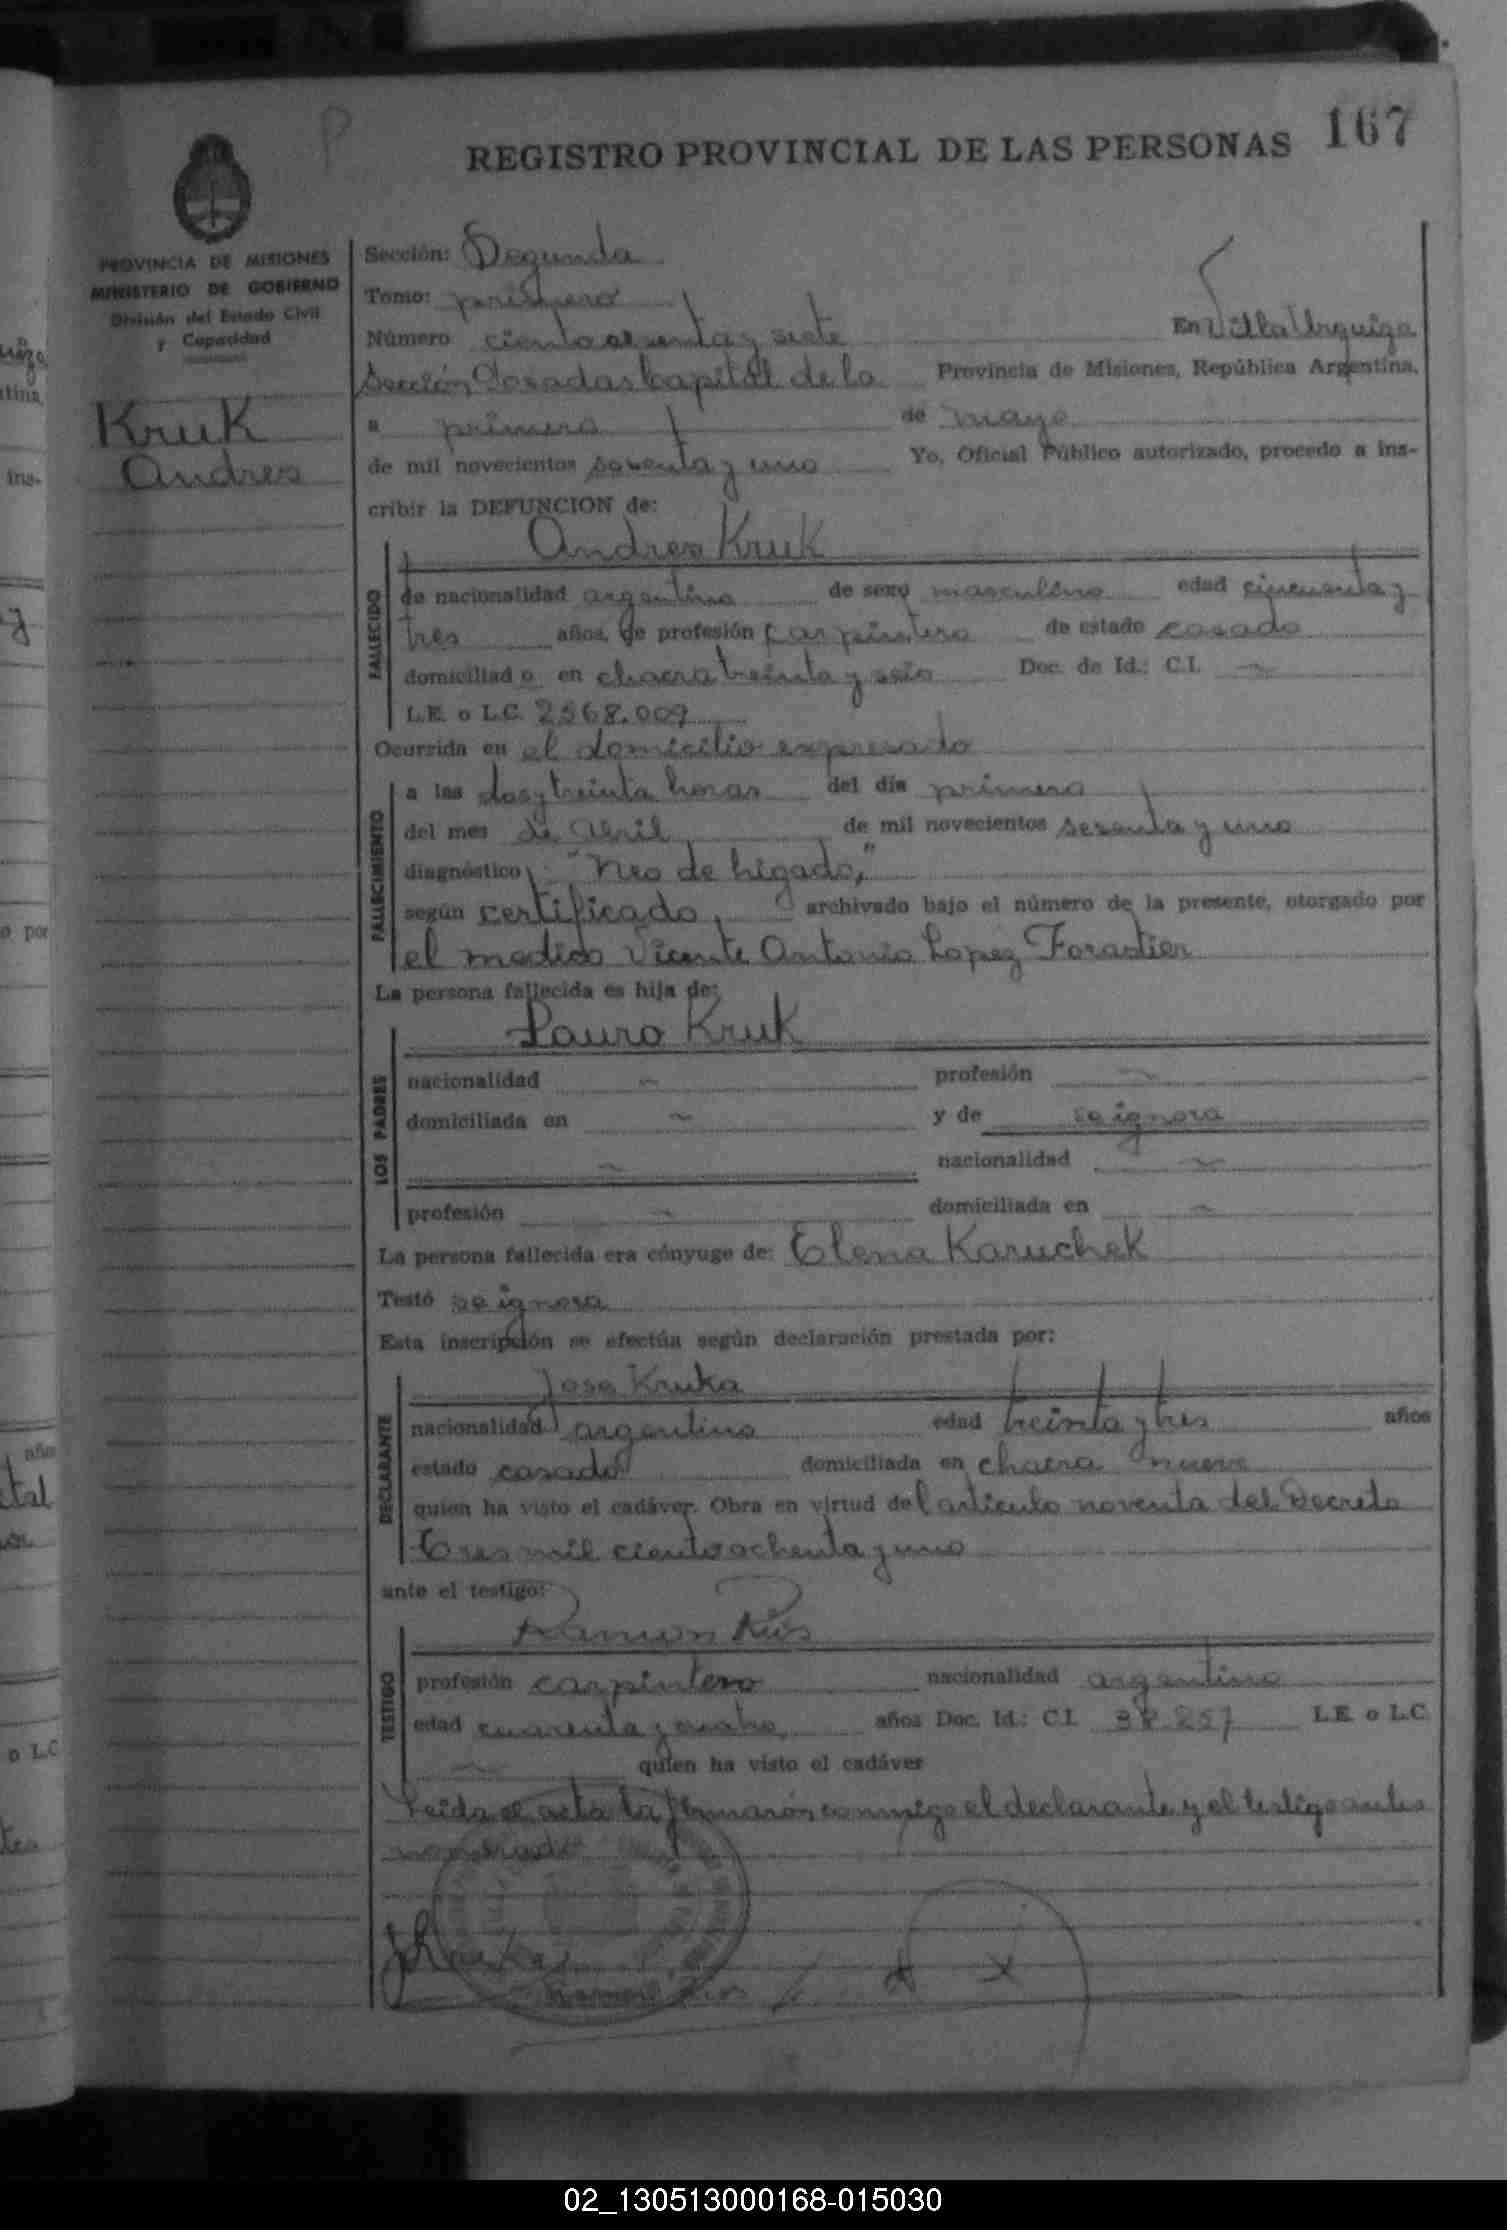 P
REGISTRO PROVINCIAL DE LAS PERSONAS 167
PROVINCIA DE MISIONES
MINISTERIO DE GOBIERNO
División del Estado Civil
y Capacidad
Kruk
Andres
Sección: Segunda
Tomo: primero
Número ciento sesenta y siete En Villa Urquiza
Sección Posadas Capital de la Provincia de Misiones, República Argentina,
a primero de mayo
de mil novecientos sesenta y uno Yo, Oficial Público autorizado, procedo a ins-
cribir la DEFUNCION de:
Andres Kruk
FALLECIDO
de nacionalidad argentino de sexo masculino edad cincuenta y
tres años, de profesión carpintero de estado casado
domiciliado en chacra treinta y seis Doc. de Id.: C.I. ~
L.E. o L.C. 2568.009
Ocurrida en el domicilio expresado
FALLECIMIENTO
a las dos y treinta horas del día primero
del mes de abril de mil novecientos sesenta y uno
diagnóstico: "Neo de higado,"
según certificado, archivado bajo el número de la presente, otorgado por
el medico Vicente Antonio Lopez Forastier
La persona fallecida es hija de:
Lauro Kruk
LOS PADRES
nacionalidad ~ profesión ~
domiciliada en ~ y de se ignora
~ nacionalidad ~
profesión ~ domiciliada en ~
La persona fallecida era cónyuge de: Elena Karuchek
Testó se ignora
Esta inscripción se efectúa según declaración prestada por:
Jose Kruka
DECLARANTE
nacionalidad argentino edad treinta y tres años
estado casado domiciliada en chacra nueve
quien ha visto el cadáver. Obra en virtud del articulo noventa del Decreto
tres mil ciento ochenta y uno
ante el testigo:
Ramon Rios
TESTIGO
profesión carpintero nacionalidad argentino
edad cuarenta y cuatro años Doc. Id.: C.I. 38.257 L.E. o L.C.
~ quien ha visto el cadáver
Leida el acta la firmaron conmigo el declarante y el testigo antes
nombrado
JKruka
Ramon Rios
02_130513000168-015030